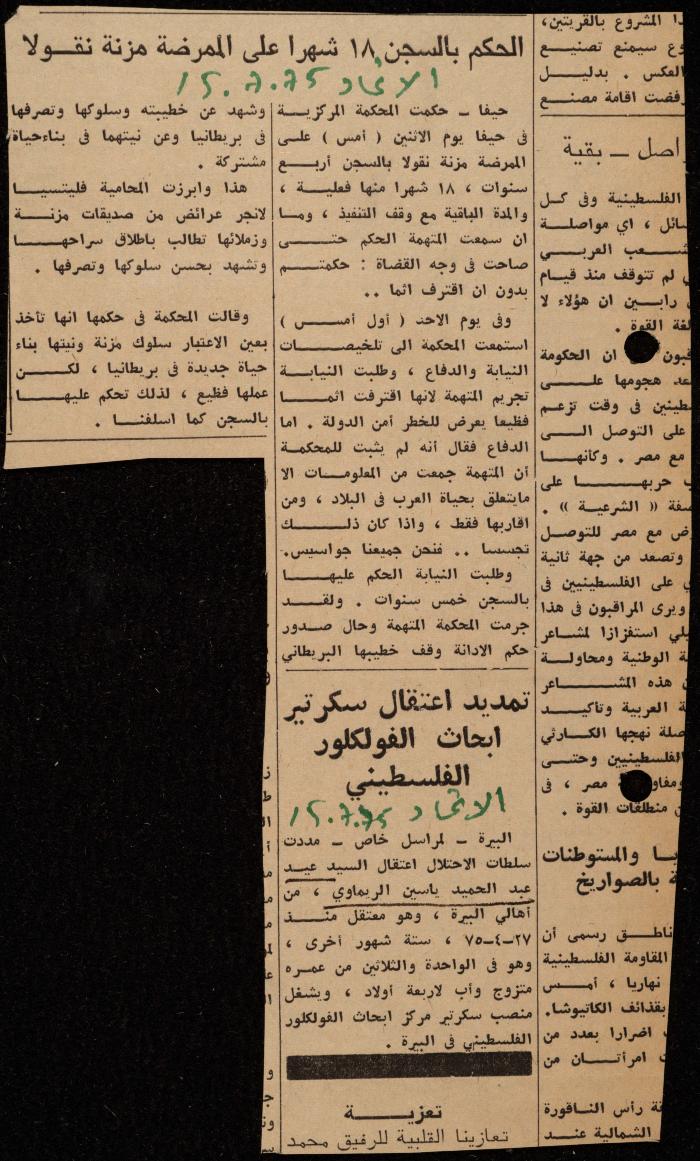 الحكم بالسجن ١٨ شهرا على الممرضة مزنة نقـولا
الاتحاد 15.7.75
حيفا ــ حكمت المحكمة المركزية
فى حيفا يوم الاثنين ( أمس ) علـى
الممرضة مزنة نقولا بالسجن أربـع
سنوات ، ١٨ شهرا منها فعلية ،
والمدة الباقية مع وقف التنفيذ ، وما
ان سمعت المتهمة الحكم حتــى
صاحت فى وجه القضاة : حكمتــم
بدون ان اقترف اثما ..
وفى يوم الاحد ( أول أمس )
استمعت المحكمة الى تلخيصـات
النيابة والدفاع ، وطلبت النيابـة
تجريم المتهمة لانها اقترفت اثمـا
فظيعا يعرض للخطر أمن الدولة . اما
الدفاع فقال أنه لم يثبت للمحكمة
أن المتهمة جمعت من المعلومـات الا
مايتعلق بحياة العرب في البلاد ، ومن
اقاربها فقط ، واذا كان ذلــك
تجسسا .. فنحن جميعنا جواسيس.
وطلبت النيابة الحكم عليهـا
بالسجن خمس سنوات . ولقـد
جرمت المحكمة المتهمة وحال صـدور
حكم الادانة وقف خطيبها البريطاني
وشهد عن خطيبته وسلوكها وتصرفها
فى بريطانيا وعن نيتهما فى بناءحياة
مشتركة .
هذا وابرزت المحامية فليتسيـا
لانجر عرائض من صديقات مزنـة
وزملائها تطالب باطلاق سراحهـا
وتشهد بحسن سلوكها وتصرفها .
وقالت المحكمة فى حكمها انها تأخذ
بعين الاعتبار سلوك مزنة ونيتها بناء
حياة جديدة فى بريطانيا ، لكـن
عملها فظيع ، لذلك تحكم عليهـا
بالسجن كما اسلفنـا .
تمديد اعتقال سكرتير
ابحاث الفولكلور
الفلسطيني
الاتحاد 15.7.75
البيرة ــ لمراسل خاص ــ مددت
سلطات الاحتلال اعتقال السيد عيـد
عبد الحميد ياسين الريماوي ، من
أهالي البيرة ، وهو معتقل منــذ
٢٧-٤-٧٥ ، ستة شهور أخرى ،
وهو فى الواحدة والثلاثين من عمـره
متزوج وأب لاربعة أولاد ، ويشغل
منصب سكرتير مركز ابحاث الفولكلور
الفلسطيني فى البيرة .
تعزيــة
تعازينا القلبية للرفيق محمد
ذا المشروع بالقريتين،
وع سيمنع تصنيـع
العكس . بدليـل
رفضت اقامة مصنـع
اصل ــ بقية
الفلسطينية وفى كـل
سائل ، اي مواصلـة
شعب العربــي
ي لم تتوقف منذ قيـام
رابـين ان هؤلاء لا
لغة القوة .
قبون ان الحكومة
عد هجومها علــى
طينين في وقت تزعـم
على التوصل الــى
مع مصر . وكأنهـا
حربهــا على
سفة « الشرعيـة » .
رض مع مصر للتوصـل
وتصعد من جهة ثانية
ي على الفلسطينيين فى
ويرى المراقبون فى هذا
يلي استفزازا لمشـاعر
ة الوطنية ومحاولـة
هذه المشــاعر
ة العربية وتأكيـد
صلة نهجها الكـارثي
الفلسطينيين وحتــى
مصر ، فى
ن منطلقات القوة .
والمستوطنات
ة بالصواريخ
ناطـق رسمى أن
المقاومة الفلسطينية
نهاريا ، أمــس
بقذائف الكاتيوشا.
اضرارا بعدد من
امرأتــان من
رأس النـاقورة
الشمالية عنــد